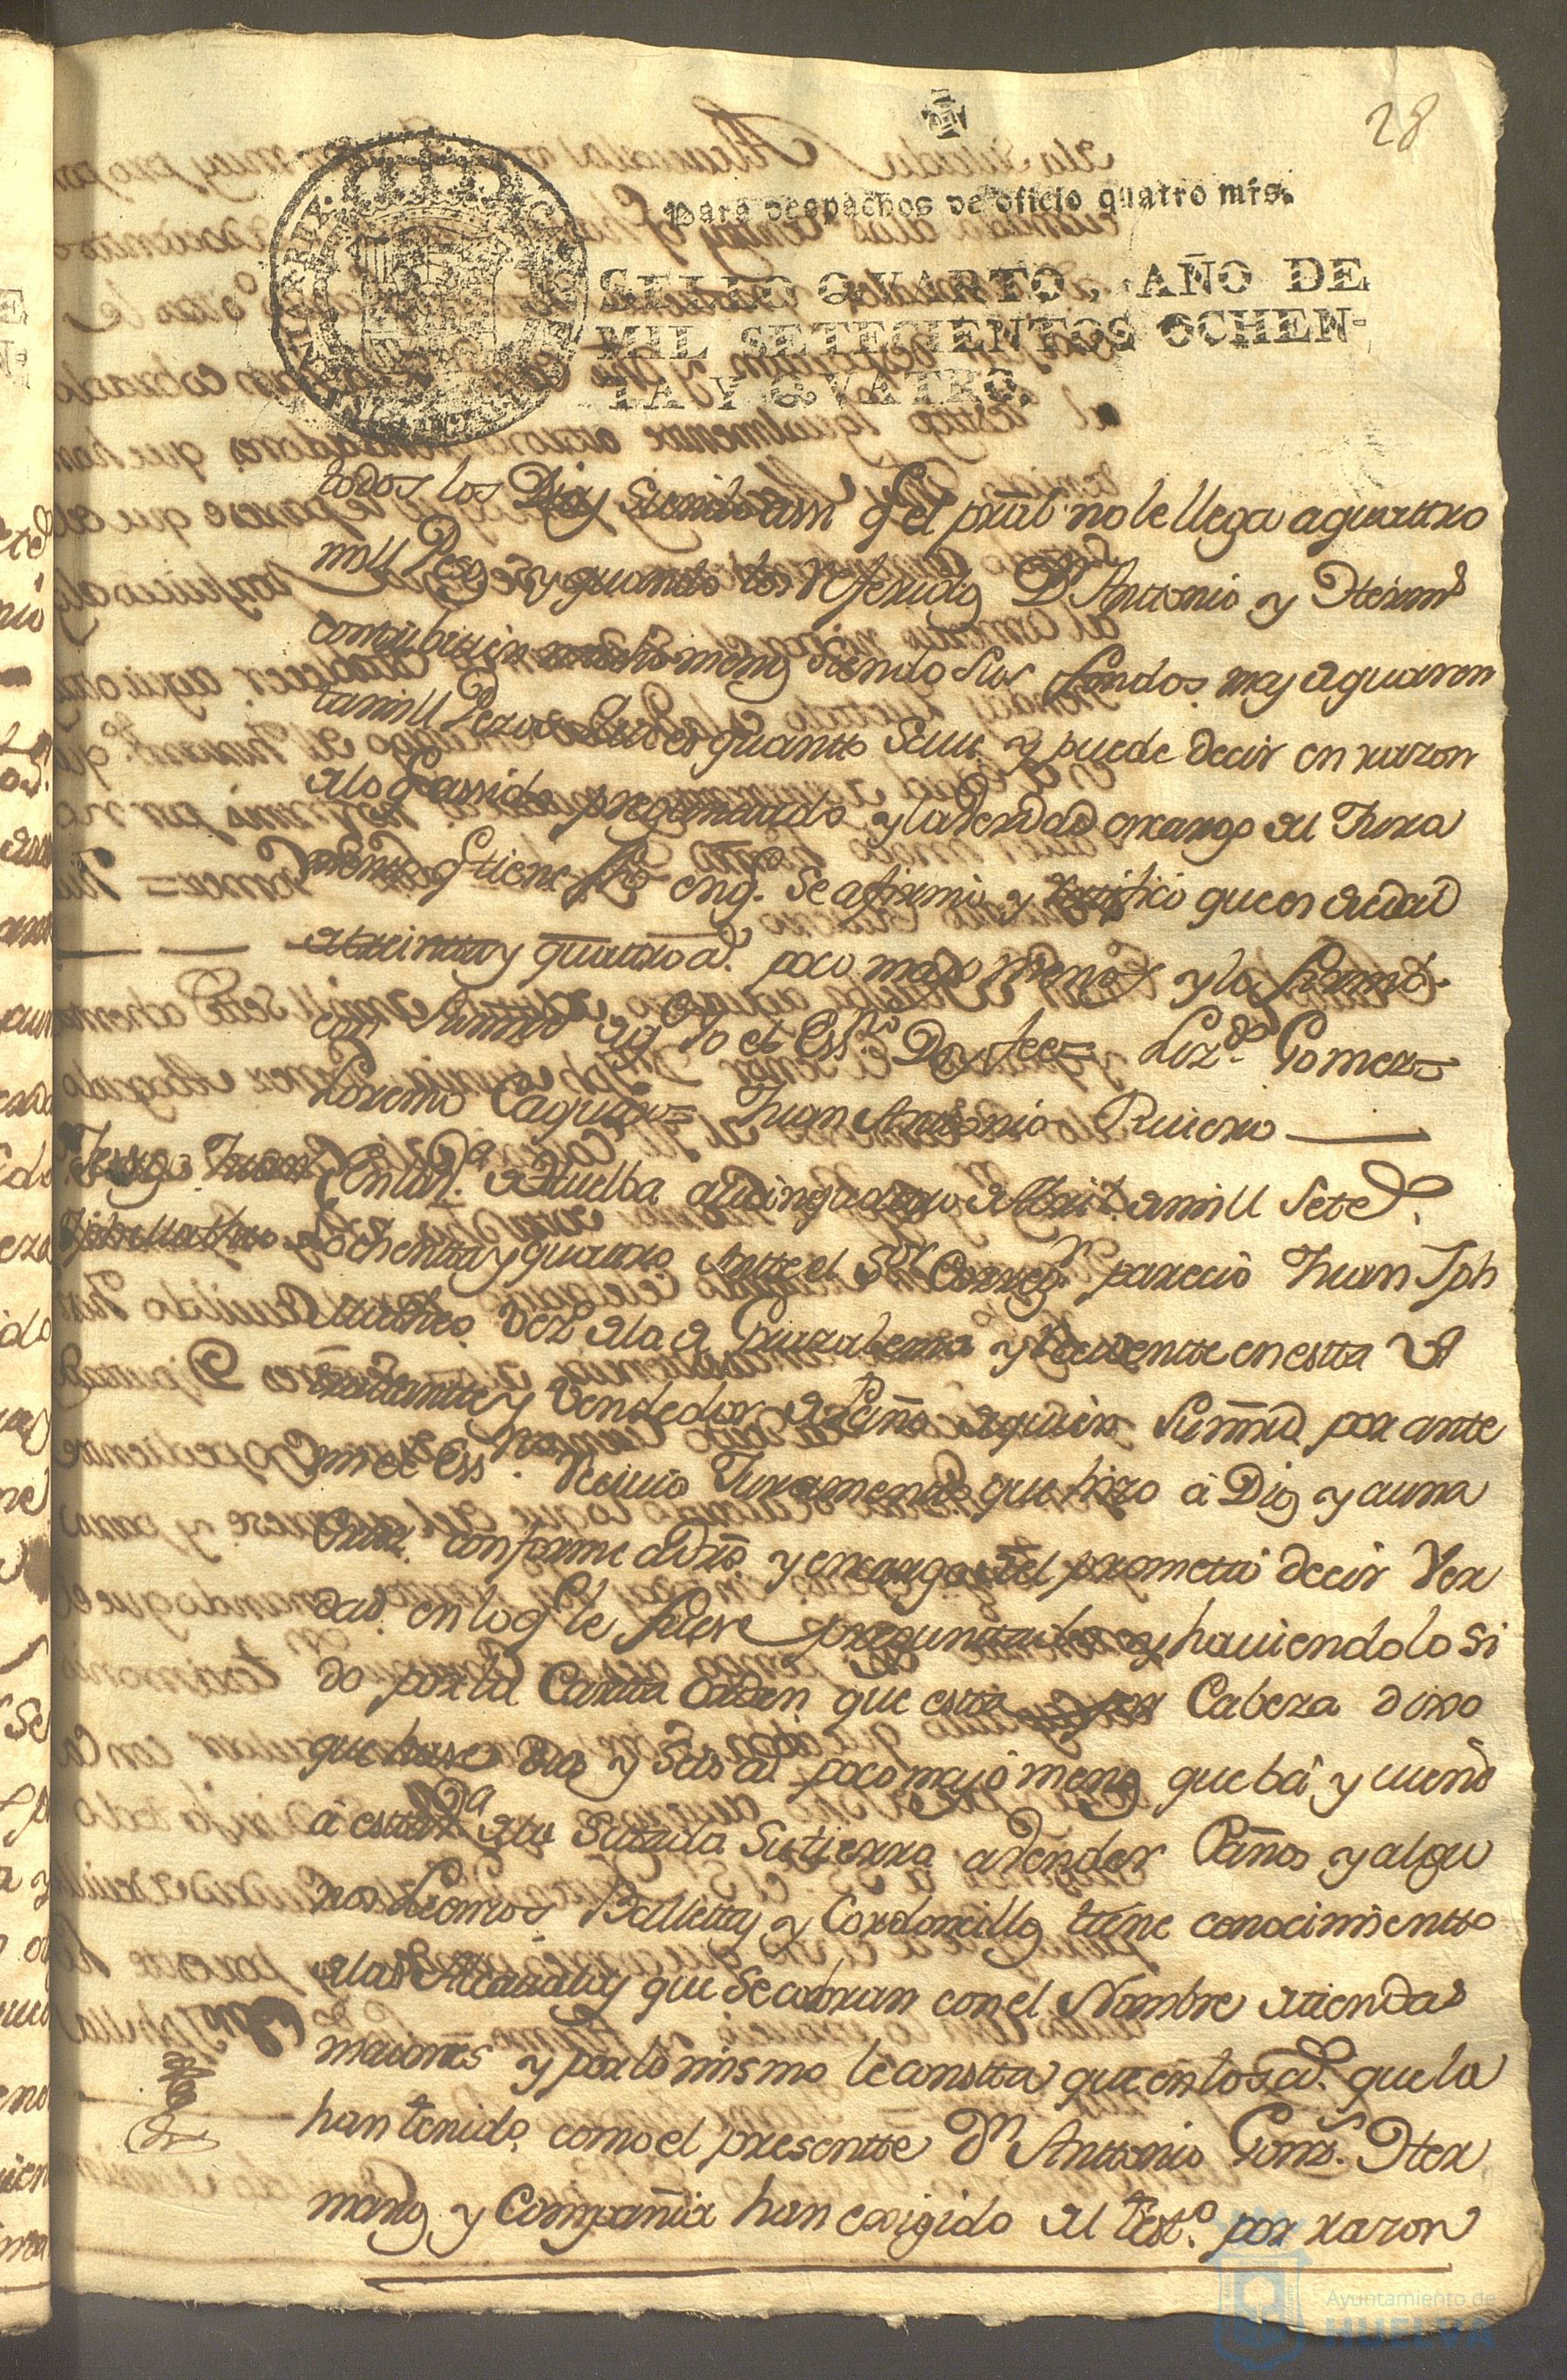 28
Para despachos de oficio quatro mrs.
SELLO QVARTO, AÑO DE
MIL SETECIENTOS OCHEN-
TA Y QVATRO.
todos los Dias siendo assi q el prãl no le llega a quattro
mill Pesos y quando los referidos Dn Antonio y Herms
contribuien mucho menos siendo sus fondos mas a quaren
tamill Pezos que es quanto save y puede decir en razon
alo q a sido preguntado y la verdad en cargo del Jura
mento q tiene fho en q. se afirmó y ratificó que es de edad
de treintta y quattro ã. poco mas o menos y lo firmó
con su mrd de q Yo el Essno Doy fee= Lizdo Gomez=
Lorenzo = Juan Antonio Riuero
Testgo Juan
Jph Matheo
En la Va de Huelba a de Abril de mill Seteds
ochentta y quattro Antte el Sor Corregr pareció Juan Jph
Matheo Vezo de la de Grazalema y Recidentte en estta Va
trattantte y Vendedor de Paños a quien Su mrd por ante
mi el Essno Recivió Juramento que hizo á Dios y a una
Cruz conforme a dro y en cargo del prometió decir Ver
dad en lo q le fuere preguntado y haviendolo si
do por la Cartta orden que está por Cabeza dixo
que hase dies y seis ãs poco mas ó menos que bá y viene
á estta Va de la Suso da Su tierra a vender Paños y algu
nos Lienzos Balletas y Cordoncillos tiene conocimientto
de las Alcavalas que se cobran con el Nombre de tiendas
maiores y por lo mismo le constta que en los ãs. que la
han tenido como el presentte Dn Anttonio Gonzs. Her
manos y Compañia han exigido al testo. por razon
Ayuntamiento de
HUELVA